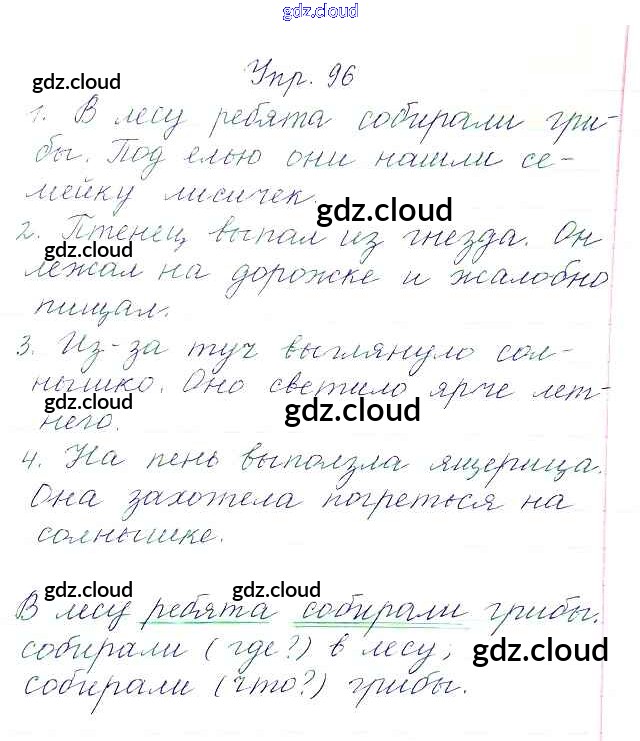 gdz.cloud
Упр. 96
gdz.cloud
1. В лесу ребята собирали гри-
бы. Под елью они нашли се-
мейку лисичек.
gdz.cloud
2. Птенец выпал из гнезда. Он
gdz.cloud
лежал на дорожке и жалобно
пищал.
3. Из-за туч выглянуло сол-
нышко. Оно светило ярче лет-
gdz.cloud
gdz.cloud
него.
4. На пень выползла ящерица.
Она захотела погреться на
солнышке.
gdz.cloud gdz.cloud
В лесу ребята собирали грибы.
собирали (где?) в лесу;
gdz.cloud
собирали (что?) грибы.